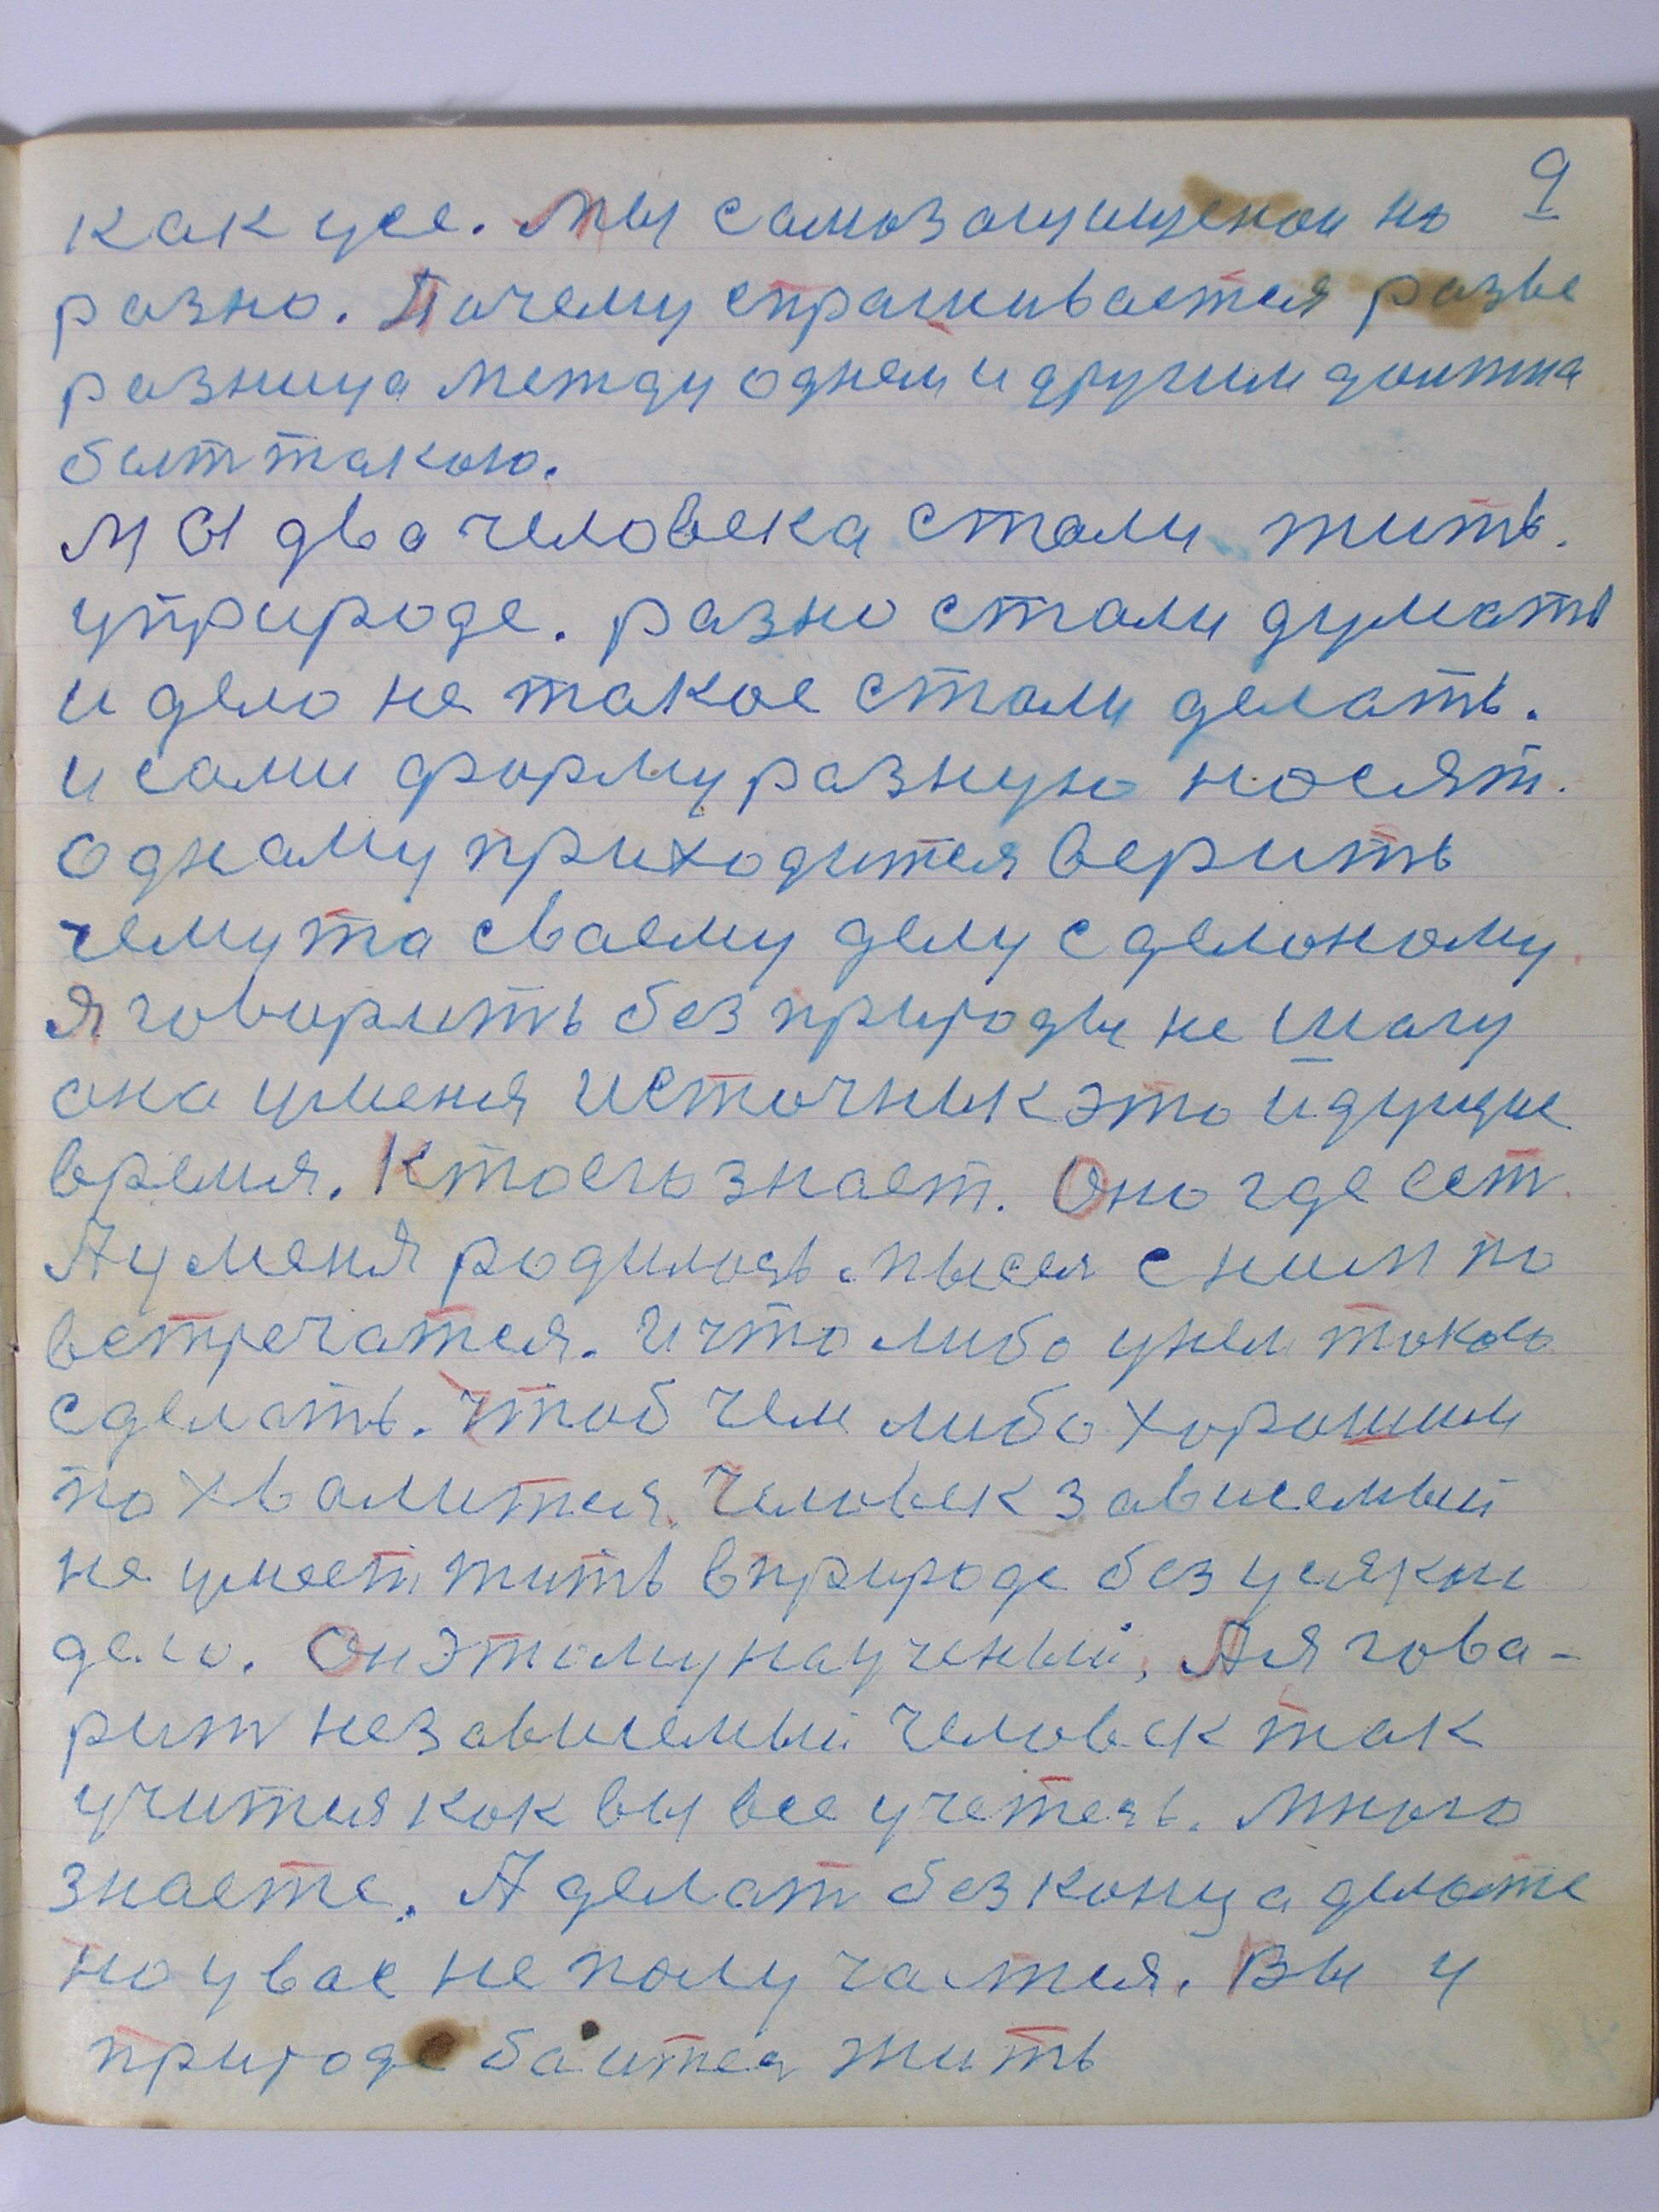 9
как усе. Мы самозащищенаи но
разно. Почему спрашивается разве
разница между однем и другим должна
быт такою.
МЫ два человека стали жить.
уприроде. разно стали думать
и дело не такое стали делать.
и сами форму разную носят.
однаму приходится верить
чемута сваему делу сделоному
Я говорить без природы не магу
она уменя источник это идущие
время. Ктоего знает. Оно где ест
Ауменя родилось. мысля с ним по
встречатся. И что либо унем такое
сделать. Чтоб чем либо хорошим
похвалится. Человек зависемый
не умеет жить вприроде без усякие
дело. Онэтомунаученый, А я гова-
рит независемый человек так
учится как вы все учетесь. Много
знаете. А делат безконца делоте
но увас не получается. Вы у
природе баитеся жить